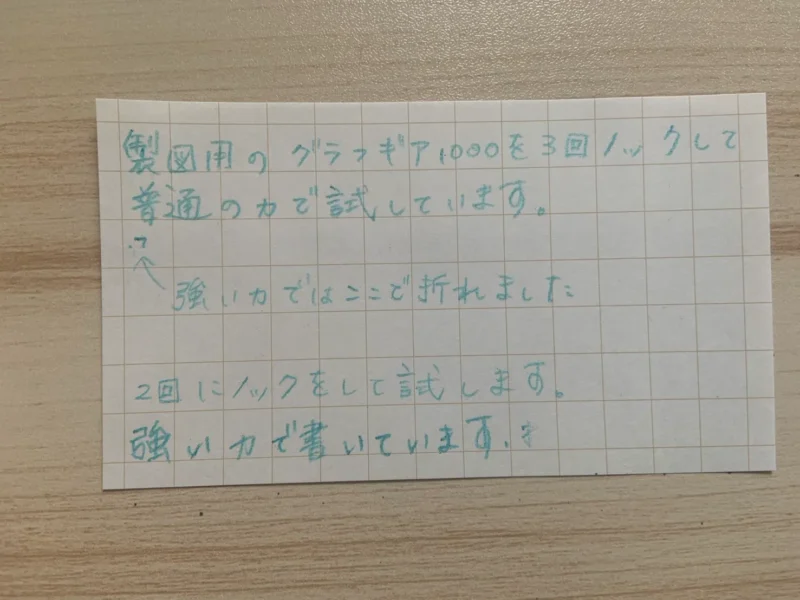 製図用のグラフギア1000を3回ノックして
普通の力で試しています。
強い力ではここで折れました
2回にノックをして試します。
強い力で書いています。